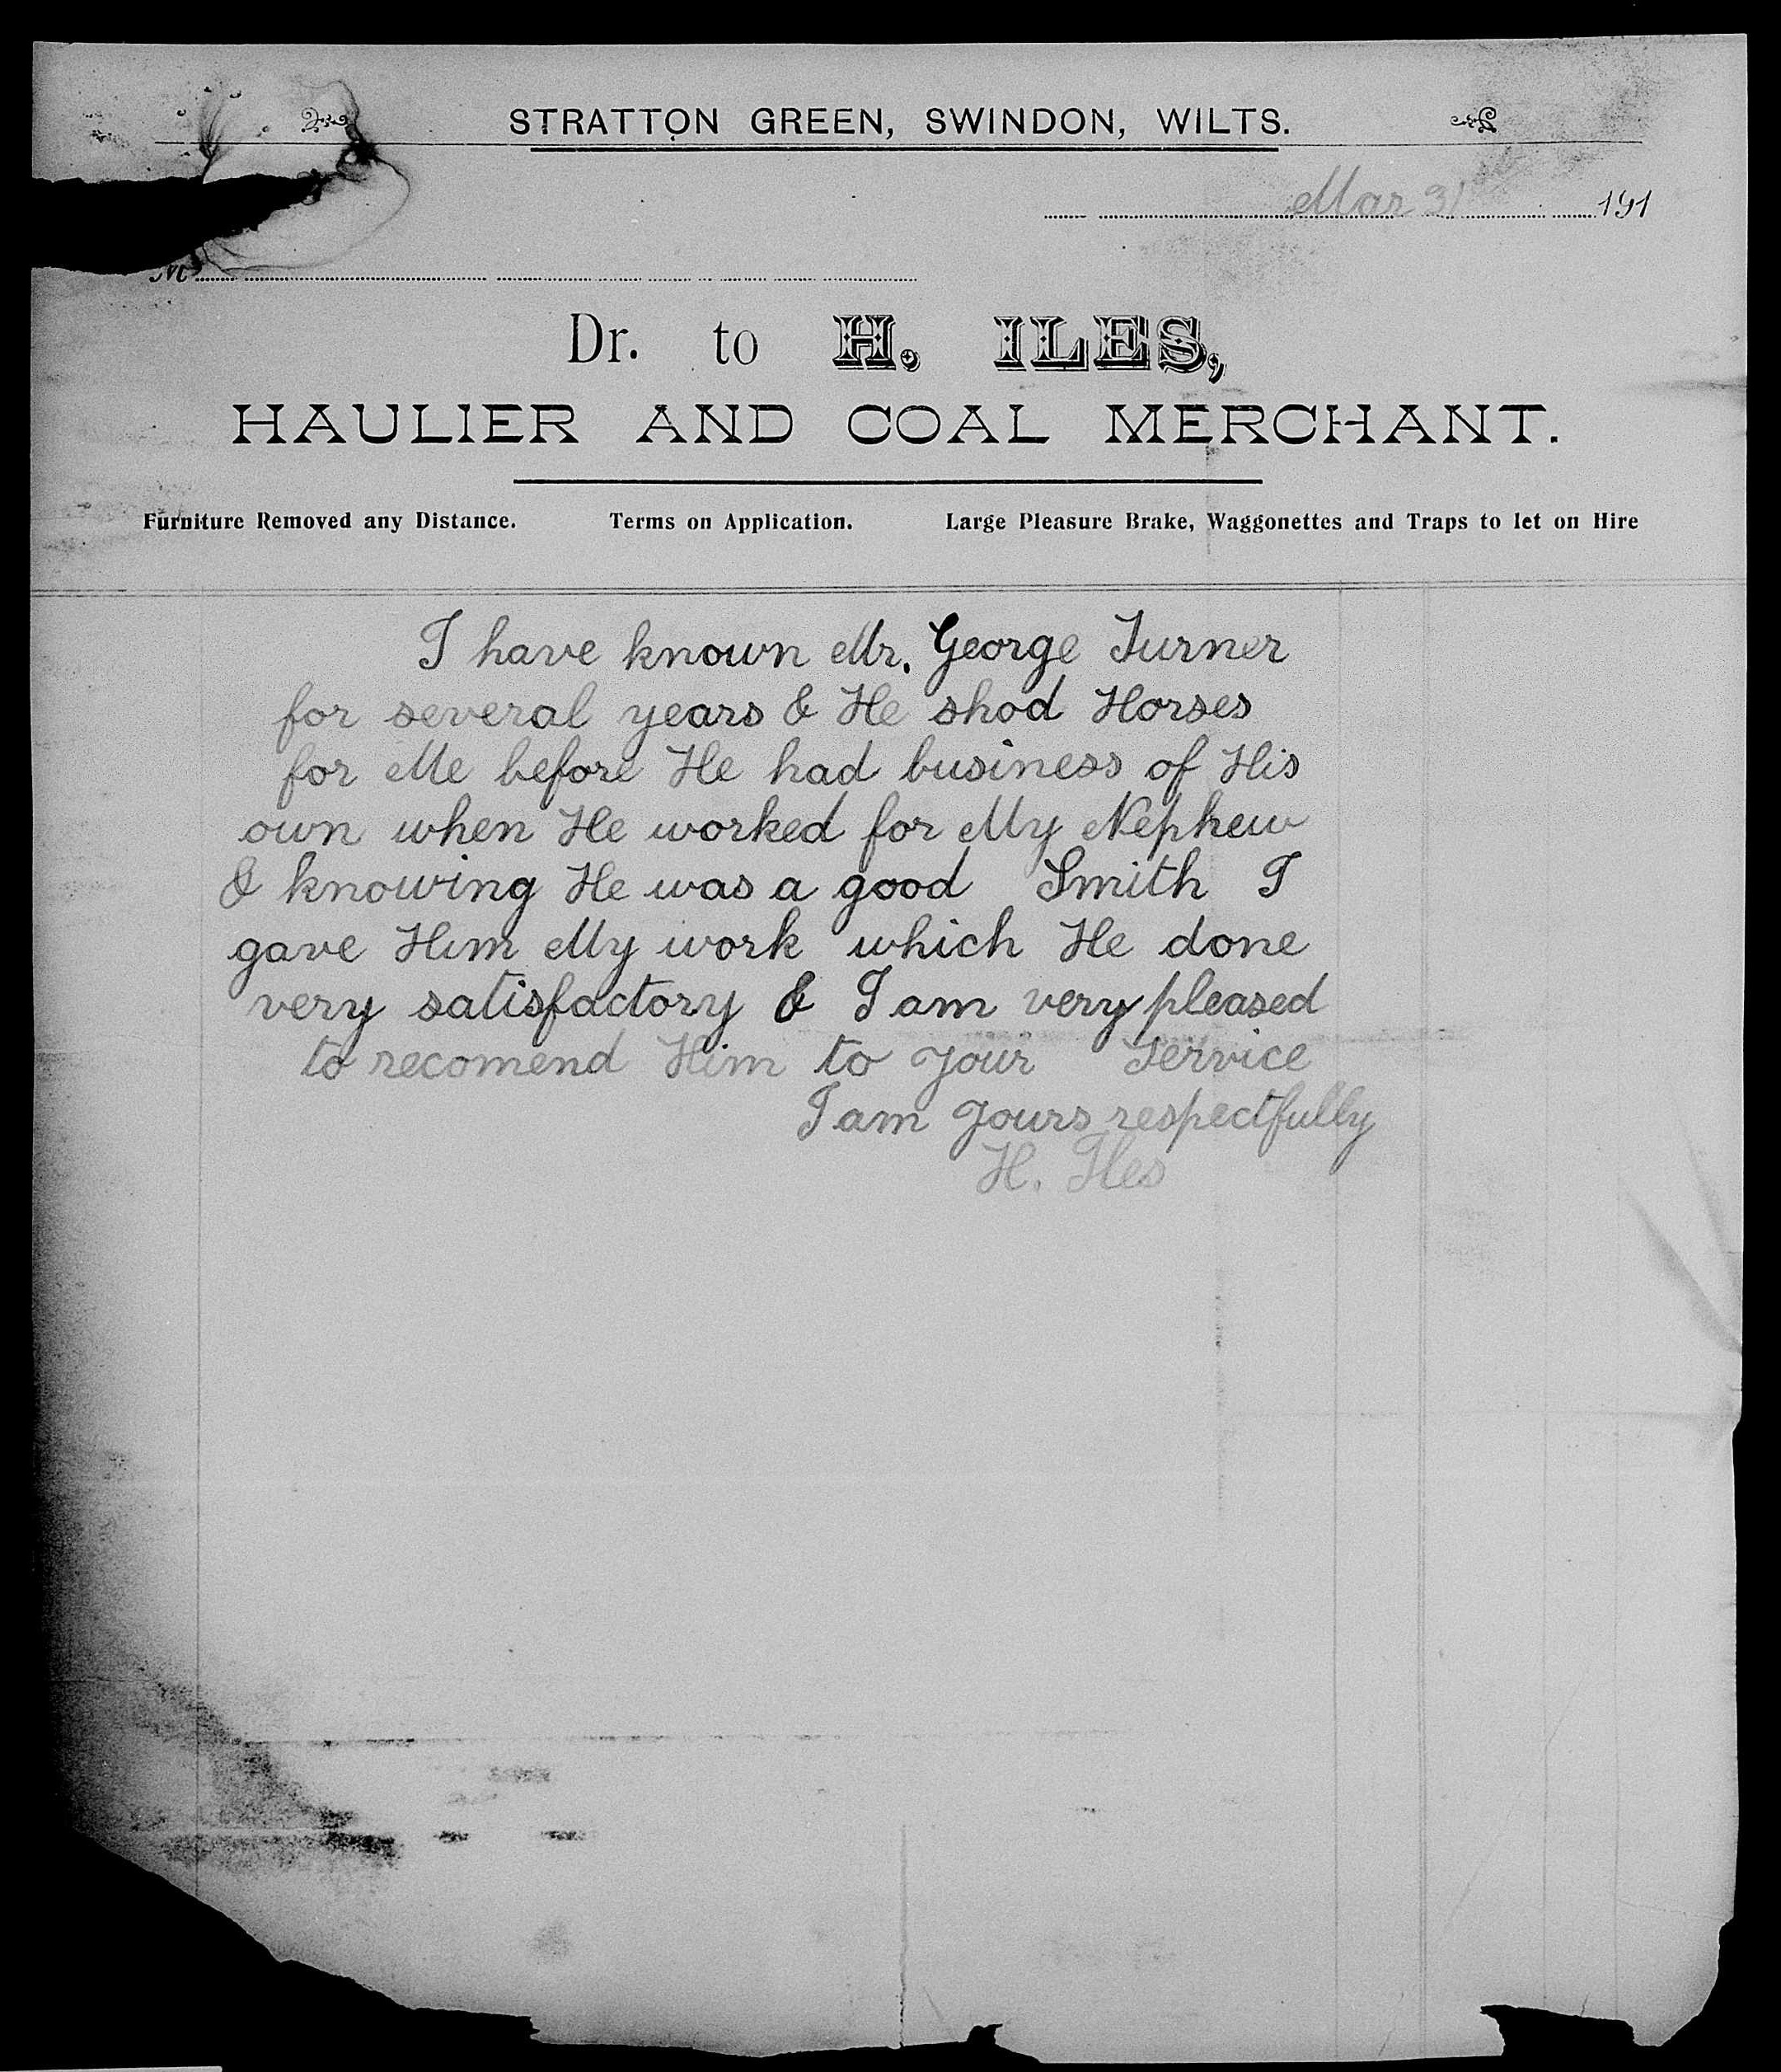 STRATTON GREEN, SWINDON, WILTS.
Mar 31 191
M
Dr. to H. ILES,
HAULIER AND COAL MERCHANT.
Furniture Removed any Distance. Terms on Application. Large Pleasure Brake, Waggonettes and Traps to let on Hire
I have known Mr. George Turner
for several years & He shod Horses
for Me before He had business of His
own when He worked for My Nephew
& knowing He was a good Smith I
gave Him My work which He done
very satisfactory & I am very pleased
to recomend Him to your Service
I am yours respectfully
H. Iles